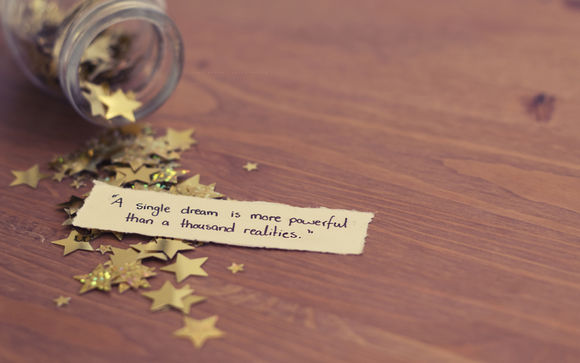 "A single dream is more powerful
than a thousand realities."